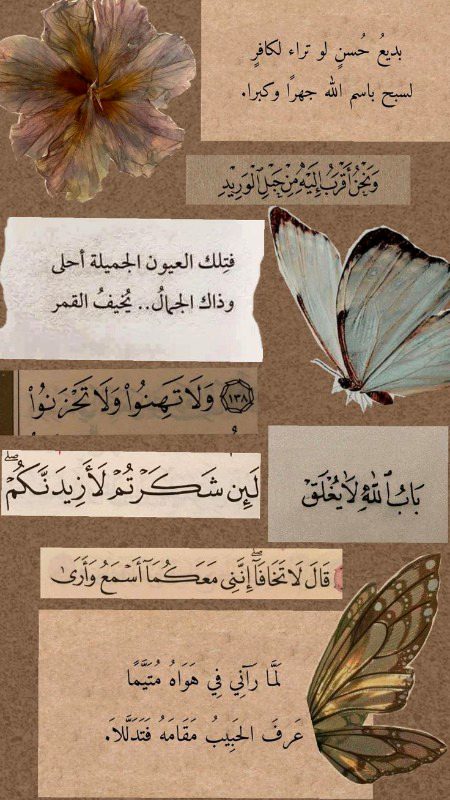 بديعُ حُسنٍ لو تراء لكافرٍ
لسبح باسم الله جهرًا وكبرا.
وَنَحْنُ أَقْرَبُ إِلَيْهِ مِنْ حَبْلِ ٱلْوَرِيدِ
فتِلك العيون الجميلة أحلى
وذاك الجمالُ.. يُخيفُ القمر
١٣٨ وَلَا تَهِنُوا۟ وَلَا تَحْزَنُوا۟
لَئِن شَكَرْتُمْ لَأَزِيدَنَّكُمْ ۖ
بَابُ ٱللَّهِ لَا يُغْلَقْ
قَالَ لَا تَخَافَآ ۖ إِنَّنِى مَعَكُمَآ أَسْمَعُ وَأَرَىٰ
لَمَّا رَآنِي فِي هَوَاهُ مُتَيَّمًا
عَرفَ الحَبِيبُ مَقَامَهُ فَتَدَلَّلاَ.